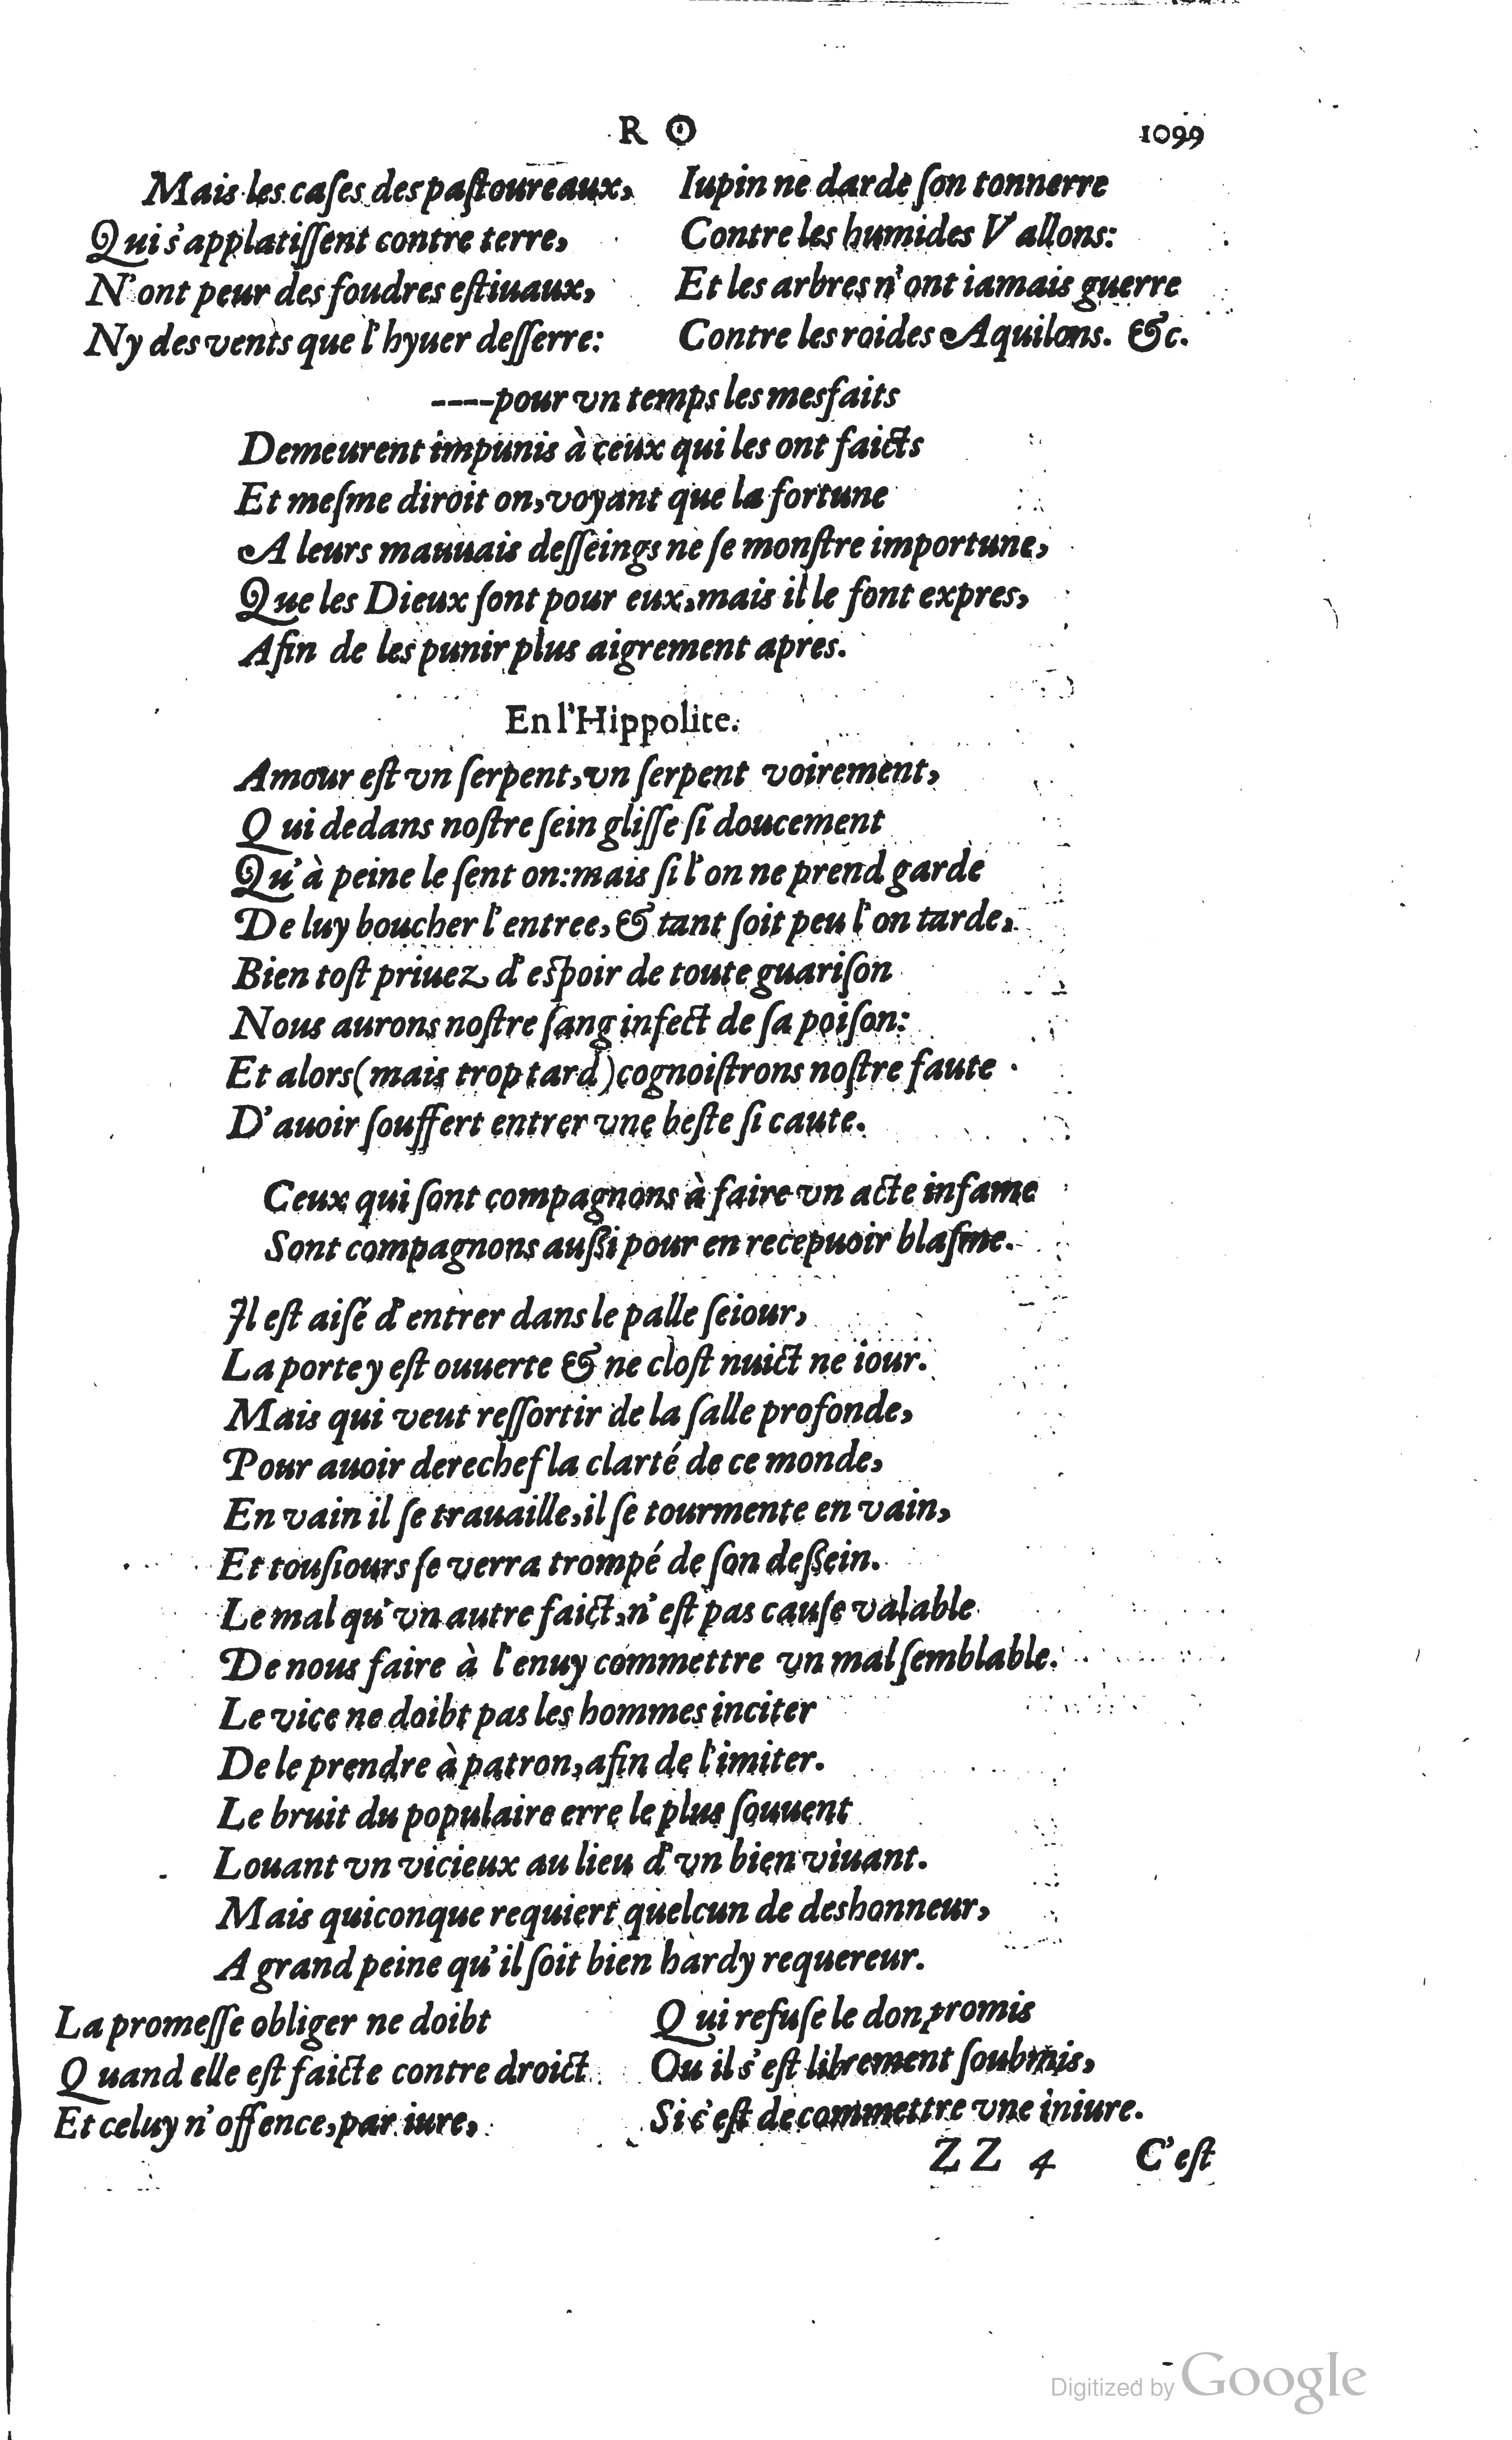 R O 1099
Mais les caſes des paſtoureaux,
Qui s'applatiſſent contre terre,
N'ont peur des foudres eſtiuaux,
Ny des vents que l'hyuer deſſerre:
Iupin ne darde ſon tonnerre
Contre les humides Vallons:
Et les arbres n'ont iamais guerre
Contre les roides Aquilons. &c.
----pour vn temps les mesfaits
Demeurent impunis à ceux qui les ont faicts
Et meſme diroit on, voyant que la fortune
A leurs mauuais deſſeings ne ſe monſtre importune,
Que les Dieux ſont pour eux, mais il le font expres,
Afin de les punir plus aigrement apres.
En l'Hippolite.
Amour eſt vn ſerpent, vn ſerpent voirement,
Qui dedans noſtre ſein gliſſe ſi doucement
Qu'à peine le ſent on: mais ſi l'on ne prend garde
De luy boucher l'entree, & tant ſoit peu l'on tarde,
Bien toſt priuez d'eſpoir de toute guariſon
Nous aurons noſtre ſang infect de ſa poiſon:
Et alors (mais trop tard) cognoiſtrons noſtre faute
D'auoir ſouffert entrer vne beſte ſi caute.
Ceux qui ſont compagnons à faire vn acte infame
Sont compagnons auſſi pour en recepuoir blaſme.
Il eſt aiſé d'entrer dans le palle ſeiour,
La porte y eſt ouuerte & ne cloſt nuict ne iour.
Mais qui veut reſſortir de la ſalle profonde,
Pour auoir derechef la clarté de ce monde,
En vain il ſe trauaille, il ſe tourmente en vain,
Et touſiours ſe verra trompé de ſon deſſein.
Le mal qu'vn autre faict, n'eſt pas cauſe valable
De nous faire à l'enuy commettre vn mal ſemblable.
Le vice ne doibt pas les hommes inciter
De le prendre à patron, afin de l'imiter.
Le bruit du populaire erre le plus ſouuent
Louant vn vicieux au lieu d'vn bien viuant.
Mais quiconque requiert quelcun de deshonneur,
A grand peine qu'il ſoit bien hardy requereur.
La promeſſe obliger ne doibt
Quand elle eſt faicte contre droict
Et celuy n'offence, par iure,
Qui refuſe le don promis
Ou il s'eſt librement ſoubmis,
Si c'eſt de commettre vne iniure.
ZZ 4 C'eſt
Digitized by Google